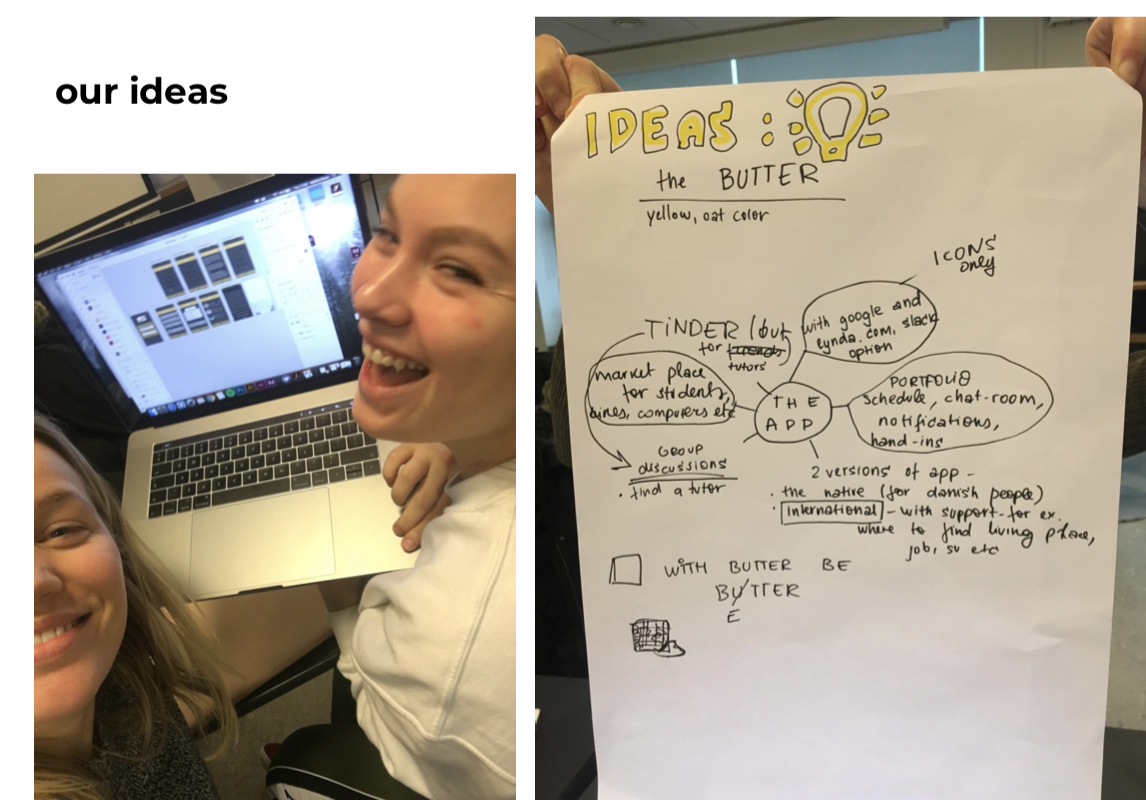 our ideas
IDEAS:
the BUTTER
yellow, oat color
ICONS
only
with google and
lynda.com, slack
option
TINDER (but
for friends)
tutors
market place
for students,
computers etc
THE
APP
PORTFOLIO
schedule, chat-room,
notifications,
hand-ins
GROUP
discussions
• find a tutor
2 versions of app -
• the native (for danish people)
• international - with support - for ex.
where to find living place,
job, su etc
WITH BUTTER BE
BUTTER
E